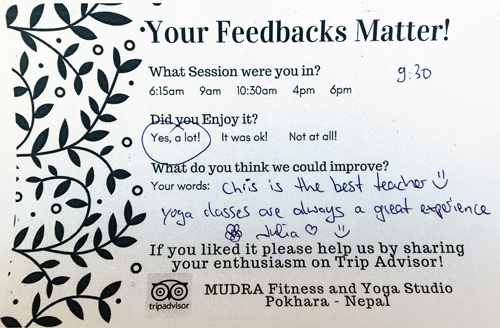 Your Feedbacks Matter!
What Session were you in? 9:30
6:15am 9am 10:30am 4pm 6pm
Did you Enjoy it?
Yes, a lot! It was ok! Not at all!
What do you think we could improve?
Your words: Chris is the best teacher
yoga classes are always a great experience
Julia
If you liked it please help us by sharing
your enthusiasm on Trip Advisor!
tripadvisor MUDRA Fitness and Yoga Studio
Pokhara - Nepal